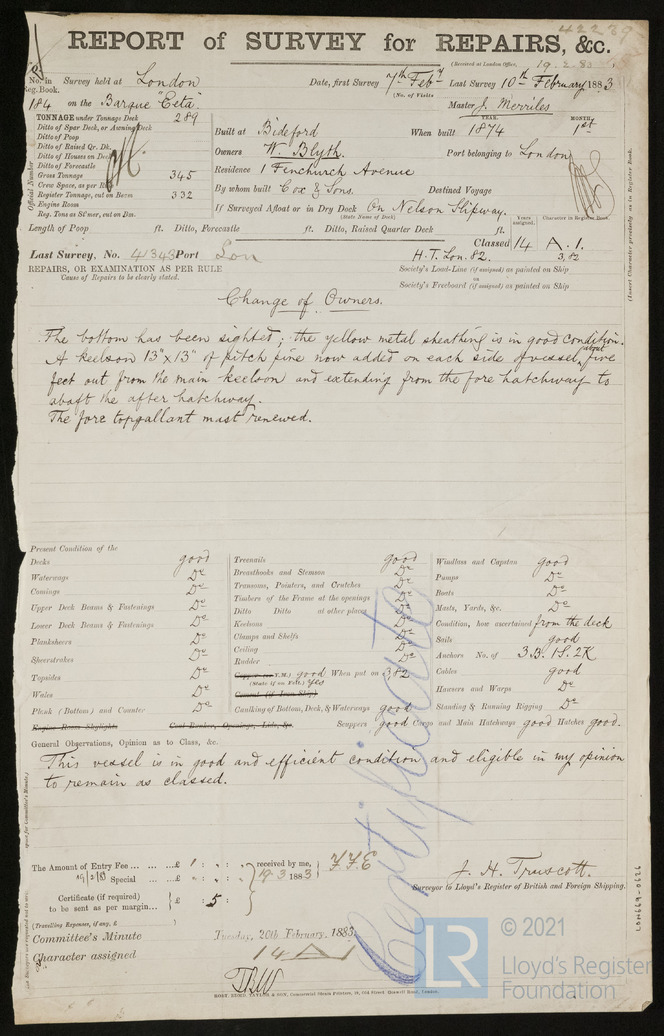 42239
REPORT of SURVEY for REPAIRS, &c.
(Received at London Office, 19.2.83
No. in Reg. Book. Survey held at London Date, first Survey 7th Feby Last Survey 10th February 1883
(No. of Visits
184 on the Barque "Ceta" Master J. Merriles
TONNAGE under Tonnage Deck 289
Ditto of Spar Deck, or Awning Deck
Ditto of Poop
Ditto of Raised Qr. Dk.
Ditto of Houses on Deck
Ditto of Forecastle
Gross Tonnage 345
Crew Space, as per
Register Tonnage, cut on Beam 332
Engine Room
Reg. Tons as St'mer, cut on Bm.
Official Number
YEAR. MONTH
Built at Bideford When built 1874 1st
Owners W. Blyth. Port belonging to London
Residence 1 Fenchurch Avenue
By whom built Cox & Sons. Destined Voyage
If Surveyed Afloat or in Dry Dock On Nelson Slipway.
(State Name of Dock)
Years assigned. Character in Register Book.
(Insert Character precisely as in Register Book.
Length of Poop ft. Ditto, Forecastle ft. Ditto, Raised Quarter Deck ft.
Classed 14 A.1.
Last Survey, No. 41343 Port Lon H.T. Lon. 82. 3,82
REPAIRS, OR EXAMINATION AS PER RULE
Cause of Repairs to be clearly stated.
Society's Load-Line (if assigned) as painted on Ship
or
Society's Freeboard (if assigned) as painted on Ship
Change of Owners.
The bottom has been sighted; the yellow metal sheathing is in good condition.
A keelson 13" x 13" of pitch pine now added on each side of vessel, about five
feet out from the main keelson and extending from the fore hatchway to
abaft the after hatchway.
The fore topgallant mast renewed.
Present Condition of the
Decks good
Waterways Do
Comings Do
Upper Deck Beams & Fastenings Do
Lower Deck Beams & Fastenings Do
Planksheers Do
Sheerstrakes Do
Topsides Do
Wales Do
Plank (Bottom) and Counter Do
Engine Room Skylights. Coal Bunker, Openings, Lids, &c.
Treenails good
Breasthooks and Stemson Do
Transoms, Pointers, and Crutches Do
Timbers of the Frame at the openings Do
Ditto Ditto at other places Do
Keelsons Do
Clamps and Shelfs Do
Ceiling Do
Rudder Do
Copper (or Y.M.) good When put on 3,82
(State if on Felt.) Yes
Cement (if Iron Ship)
Caulking of Bottom, Deck, & Waterways good
Scuppers good Cargo and Main Hatchways good Hatches good.
Windlass and Capstan good
Pumps Do
Boats Do
Masts, Yards, &c. Do
Condition, how ascertained from the deck
Sails good
Anchors No. of 3.B. 1S. 2K
Cables good
Hawsers and Warps Do
Standing & Running Rigging Do
General Observations, Opinion as to Class, &c.
This vessel is in good and efficient condition and eligible in my opinion
to remain as classed.
Certificate
The Amount of Entry Fee ... £ 1 : : received by me, F.F.E
19/2/83 Special ... £ : : 19.3 1883
Certificate (if required) to be sent as per margin... £ : 5 :
(Travelling Expenses, if any, £ )
J. H. Truscott.
Surveyor to Lloyd's Register of British and Foreign Shipping.
Committee's Minute Tuesday, 20th February, 1883
Character assigned 14 A 1
LON669-0626
LR
© 2021
Lloyd's Register
Foundation